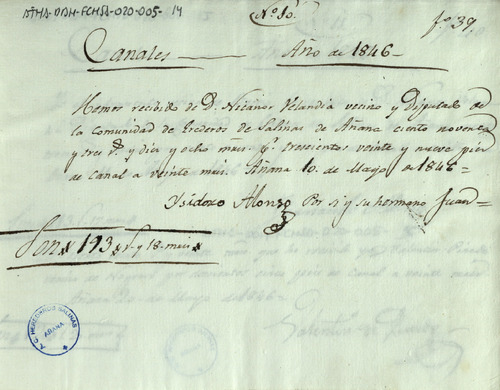 ATHA-DAH-FCHSA-020-005-14
Nº. 10.
fº. 39.
Canales Año de 1846
Hemos recibido de D. Nicanor Velandia vecino y Diputado de
la Comunidad de Erederos de Salinas de Añana ciento noventa
y tres rs. y diez y ocho mais. pr. trescientos veinte y nueve pies
de canal a veinte mais. Añana 10 de Mayo de 1846
Ysidoro Alonso Por si y su hermano Juan
Son 193 rs. y 18 mais
A.C. HEREDEROS SALINAS
AÑANA